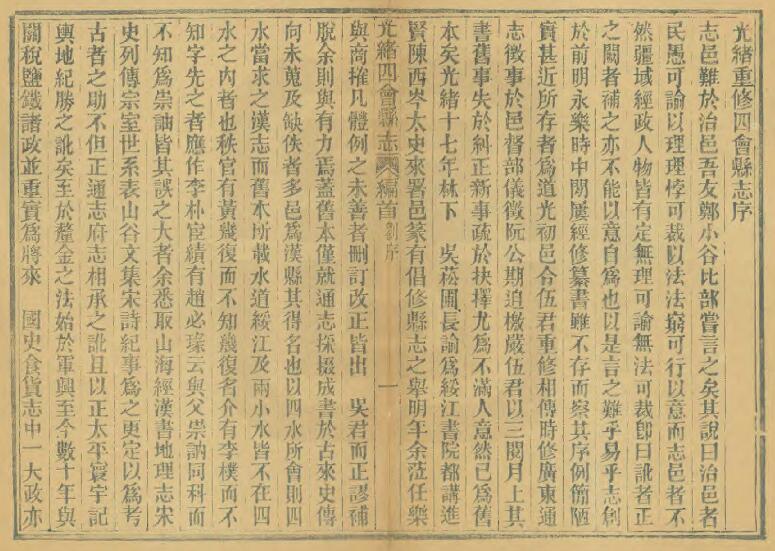 光緒重修四會縣志序
志邑難於治邑吾友鄭小谷比部嘗言之矣其說曰治邑者
民愚可諭以理理悖可裁以法法窮可行以意而志邑者不
然疆域經政人物皆有定無理可諭無法可裁卽曰訛者正
之闕者補之亦不能以意自爲也以是言之難乎易乎志創
於前明永樂時中間屢經修纂書雖不存而察其序例簡陋
實甚近所存者爲道光初邑令伍君重修相傳時修廣東通
志徵事於邑督部儀徵阮公期迫檄嚴伍君以三閱月上其
書舊事失於糾正新事疏於抉擇尤爲不滿人意然已爲舊
本矣光緒十七年林下 吳菘圃長諭爲綏江書院都講進
賢陳西岑太史來署邑篆有倡修縣志之舉明年余蒞任樂
光緒四會縣志 編首 序 一
與商搉凡體例之未善者刪訂改正皆出 吳君而正謬補
脫余則與有力焉蓋舊本僅就通志採掇成書於古來史傳
向未蒐及缺佚者多邑爲漢縣其得名也以四水所會則四
水當求之漢志而舊本所載水道綏江及兩小水皆不在四
水之內者也秩官有黃幾復而不知幾復名介有李樸而不
知字先之者應作李朴宦績有趙必瑑云與父崇訥同科而
不知爲崇詘皆其誤之大者余悉取山海經漢書地理志宋
史列傳宗室世系表山谷文集宋詩紀事爲之更定以爲考
古者之助不但正通志府志相承之訛且以正太平寰宇記
輿地紀勝之訛矣至於釐金之法始於軍興至今數十年與
關稅鹽鐵諸政並重實爲將來 國史食貨志中一大政亦